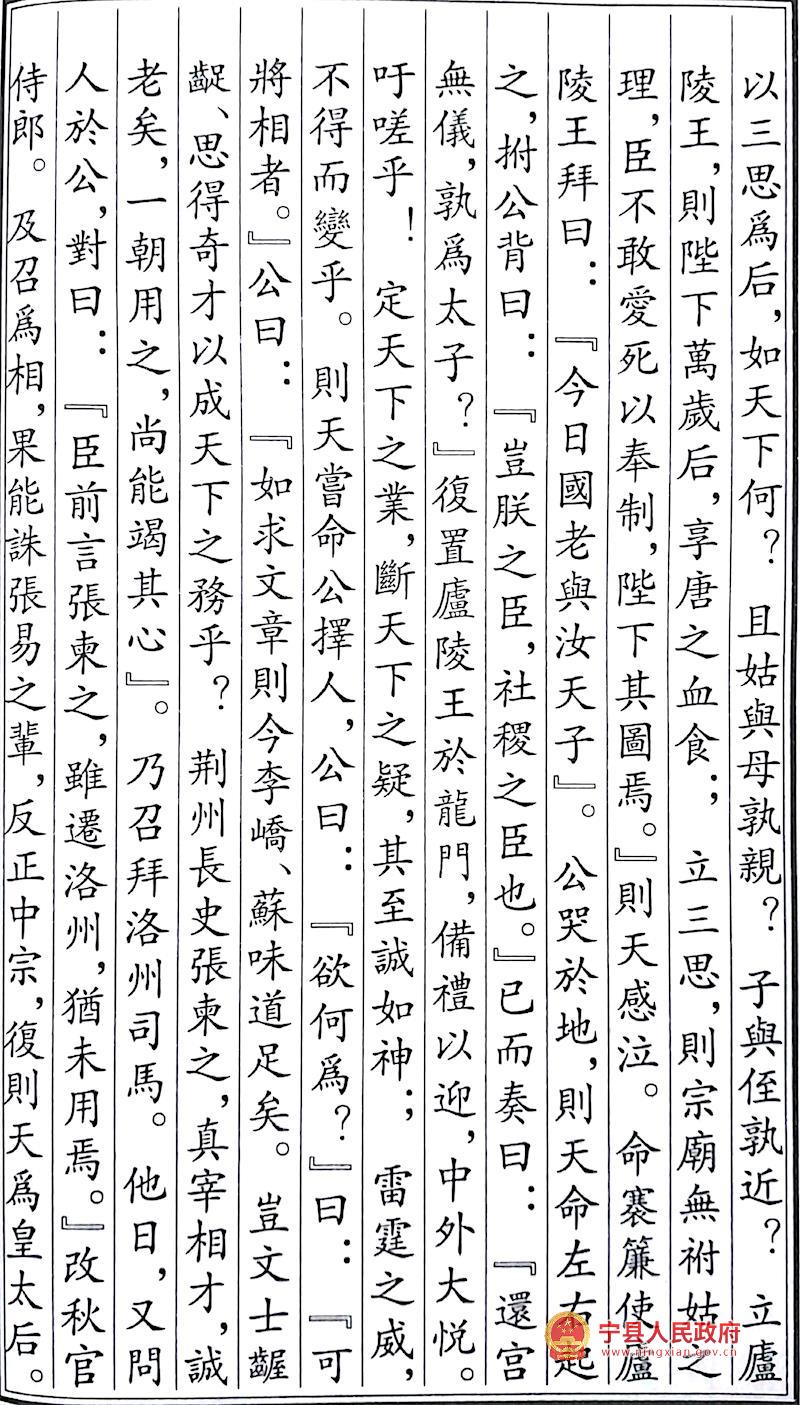 以三思爲后，如天下何？且姑與母孰親？子與侄孰近？立廬
陵王，則陛下萬歲后，享唐之血食；立三思，則宗廟無祔姑之
理，臣不敢愛死以奉制，陛下其圖焉。』則天感泣。命褰簾使廬
陵王拜曰：『今日國老與汝天子』。公哭於地，則天命左右起
之，拊公背曰：『豈朕之臣，社稷之臣也。』已而奏曰：『還宫
無儀，孰爲太子？』復置廬陵王於龍門，備禮以迎，中外大悦。
吁嗟乎！定天下之業，斷天下之疑，其至誠如神；雷霆之威，
不得而變乎。則天嘗命公擇人，公曰：『欲何爲？』曰：『可
將相者。』公曰：『如求文章則今李嶠、蘇味道足矣。豈文士齷
齪、思得奇才以成天下之務乎？荆州長史張柬之，真宰相才，誠
老矣，一朝用之，尚能竭其心』。乃召拜洛州司馬。他日，又問
人於公，對曰：『臣前言張柬之，雖遷洛州，猶未用焉。』改秋官
侍郎。及召爲相，果能誅張易之輩，反正中宗，復則天爲皇太后。
宁县人民政府
www.ningxian.gov.cn